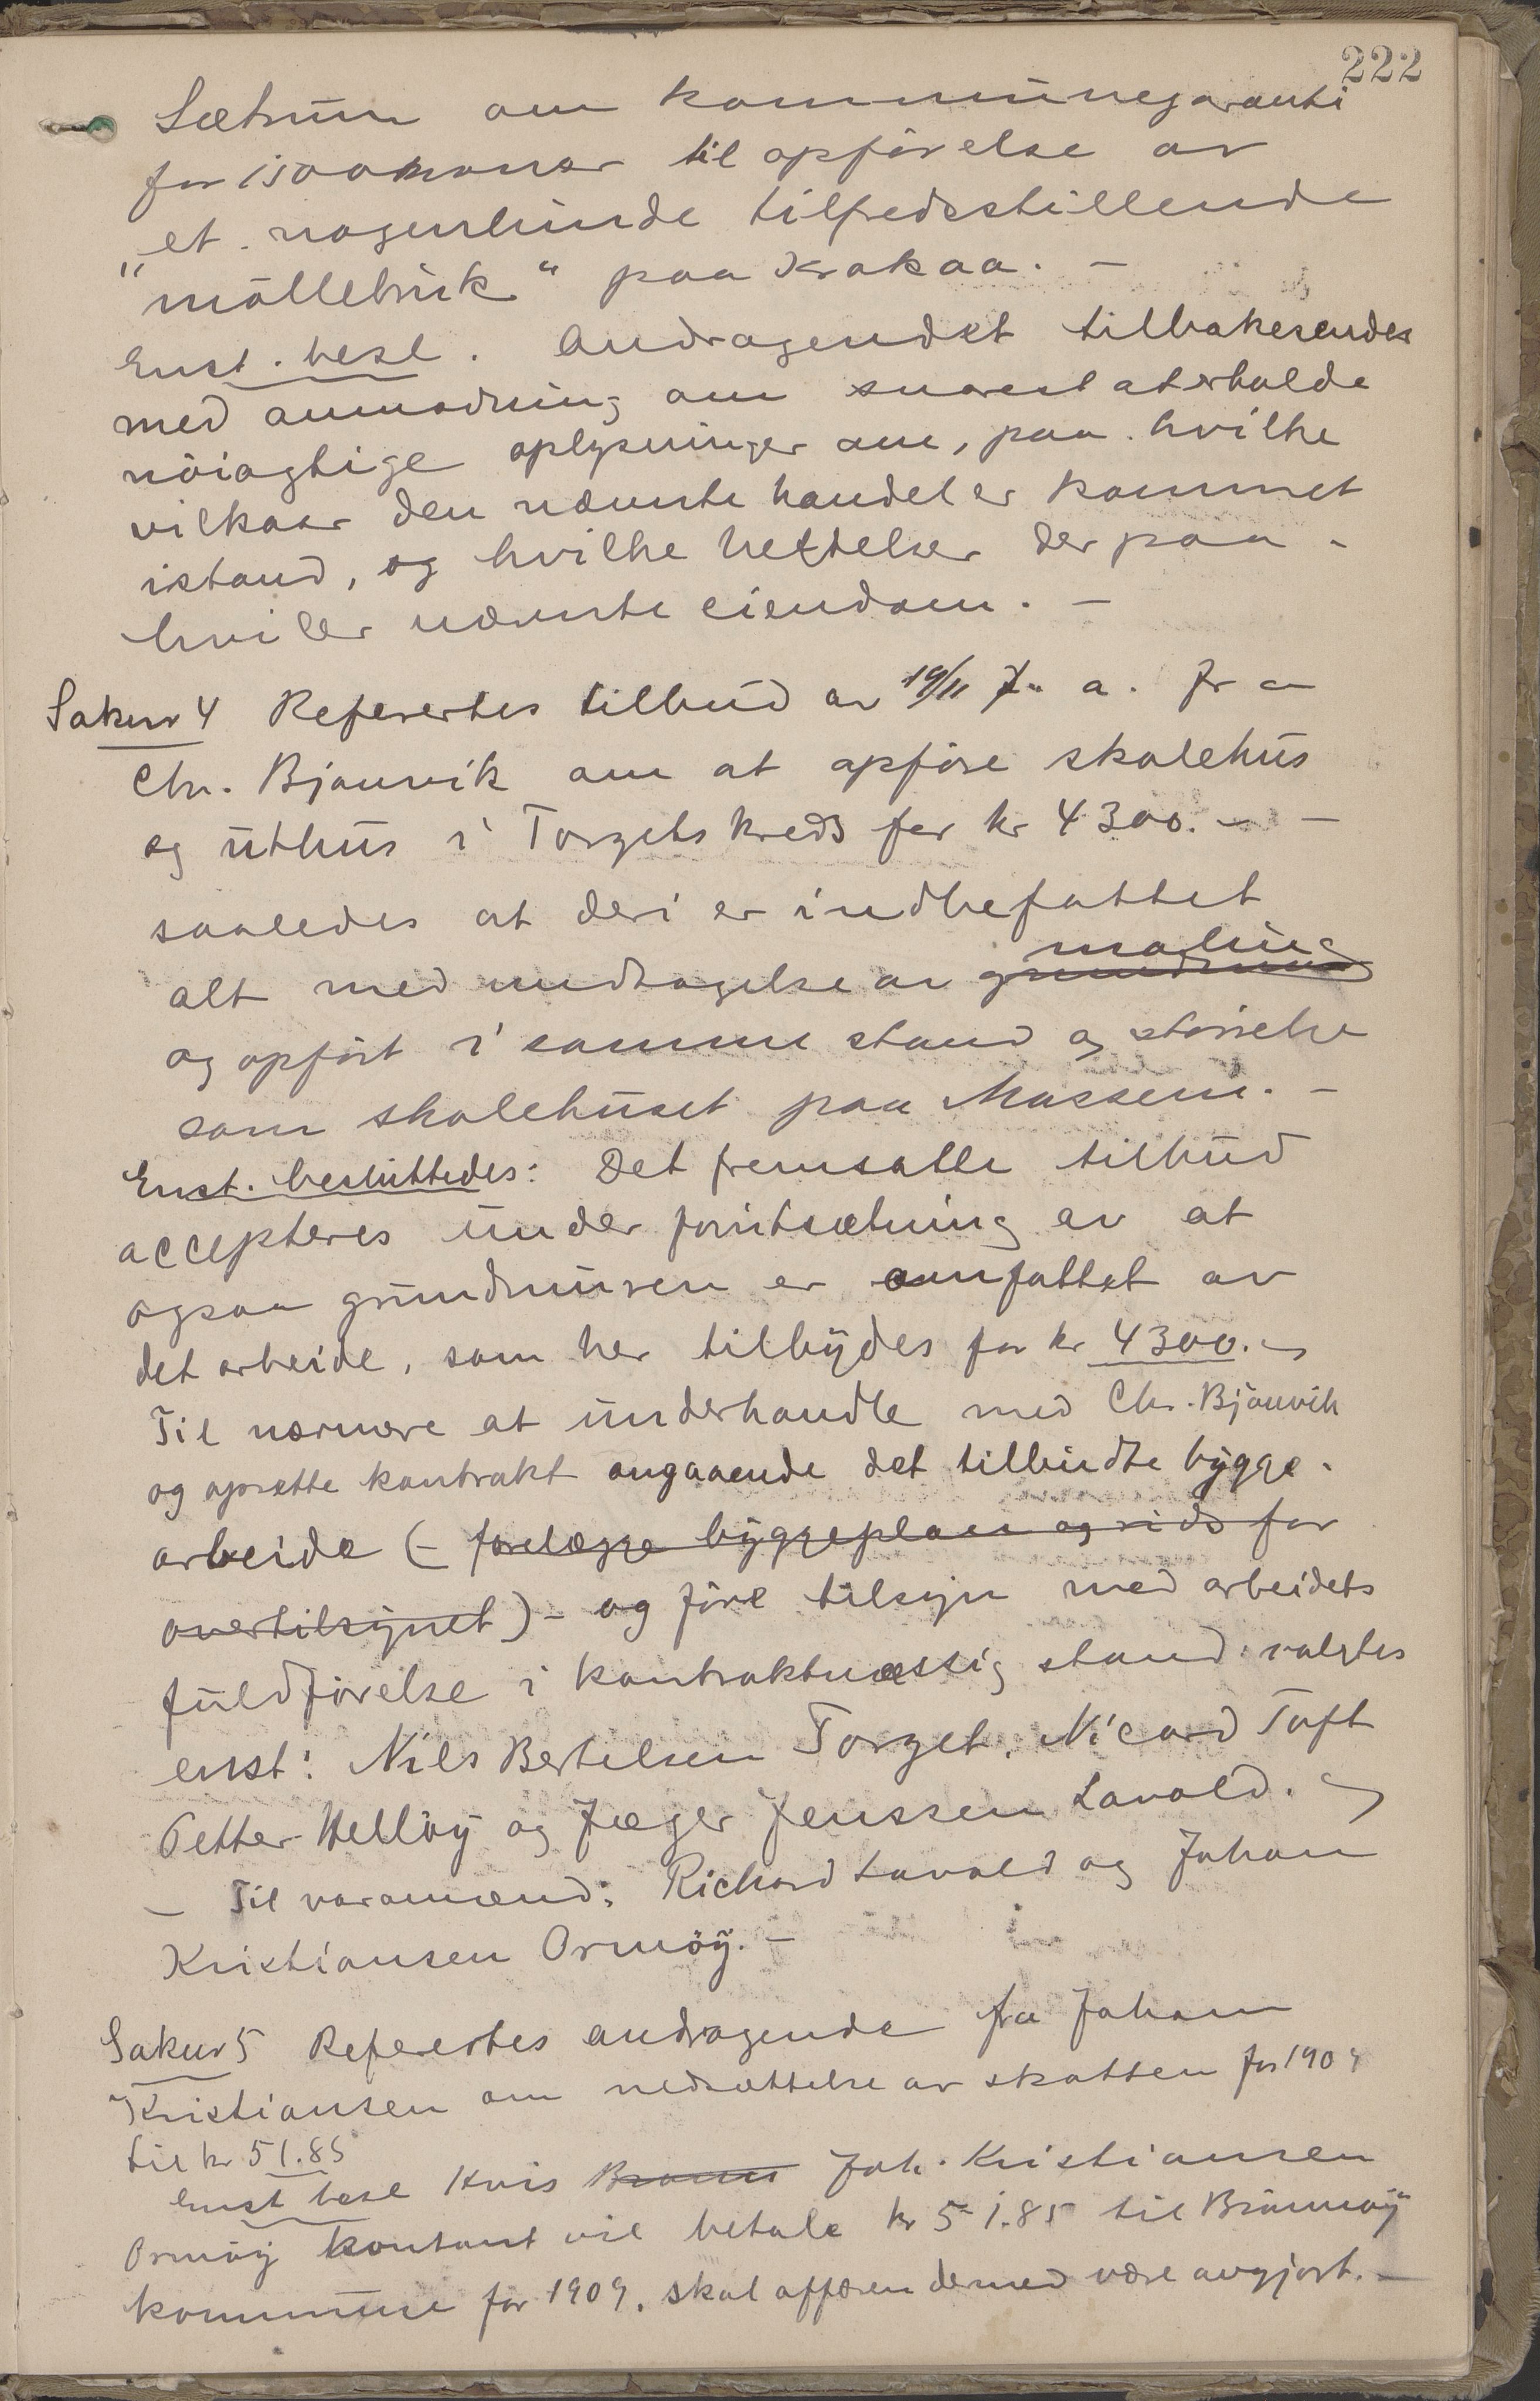 222
Sætrum om kommunegaranti
for 1500 kroner til opførelse av
„et nogenlunde tilfredsstillende
møllebruk“ paa Krokaa. –
Enst. besl. Andragendet tilbakesendes
med anmodning om snarest at erholde
nöiagtige oplysninger om, paa hvilke
vilkaar den nævnte handel er kommet
istand, og hvilke heftelser der paa-
hviler nævnte eiendom. –
Saknr 4 Refertes tilbud av 19/11 f. a. fra
Chr. Bjønvik om at opføre skolehus
og uthus i Torgets kreds for kr 4300. – –
saaledes at deri er indbefattet
maling
alt med undtagelse av grundmur
og opført i samme stand og størrelse
som skolehuset paa Mossem. –
Enst. besluttedes: Det fremsatte tilbud
accepteres under forutsætning av at
ogsaa grundmuren er omfattet av
det arbeide, som her tilbydes for kr 4300. –
Til nærmere at underhandle med Chr. Bjønvik
og oprette kontrakt angaaende det tilbudte bygge-
arbeide (– forelægge byggeplan og rids for
overtilsynet) – og føre tilsyn med arbeidets
fuldførelse i kontraktmæssig stand valgtes
enst: Nils Bertelsen Torget, Nicard Toft
Petter Helløy og Jæger Jenssen Lavold. –
– Til varamænd: Richard Lavold og Johan
Kristiansen Ormøy. –
Saknr 5 Referertes andragende fra Johan
Kristiansen om nedsættelse av skatten for 1909
til kr 51.85
Enst besl Hvis Joh. Kristiansen
Ormøy kontant vil betale kr 51.85 til Brønnøy
kommune for 1909, skal affæren dermed være avgjort. –